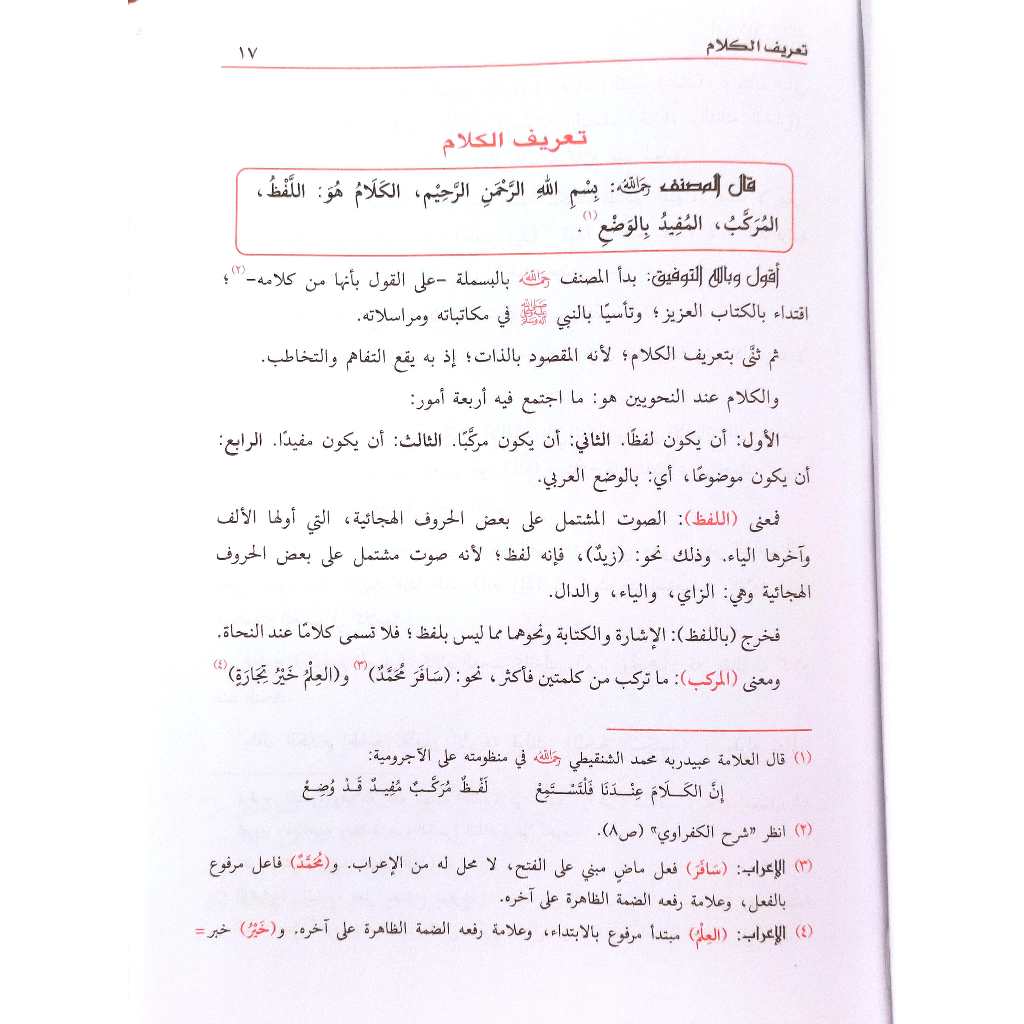 تعريف الكلام ١٧
تعريف الكلام
قال المصنف رحمه الله: بِسْمِ اللهِ الرَّحْمَنِ الرَّحِيْمِ، الكَلَامُ هُوَ: اللَّفْظُ،
المُرَكَّبُ، المُفِيدُ بِالوَضْعِ(١).
أقول وبالله التوفيق: بدأ المصنف رحمه الله بالبسملة -على القول بأنها من كلامه-(٢)؛
اقتداء بالكتاب العزيز؛ وتأسيًا بالنبي ﷺ في مكاتباته ومراسلاته.
ثم ثنَّى بتعريف الكلام؛ لأنه المقصود بالذات؛ إذ به يقع التفاهم والتخاطب.
والكلام عند النحويين هو: ما اجتمع فيه أربعة أمور:
الأول: أن يكون لفظًا. الثاني: أن يكون مركَّبًا. الثالث: أن يكون مفيدًا. الرابع:
أن يكون موضوعًا، أي: بالوضع العربي.
فمعنى (اللفظ): الصوت المشتمل على بعض الحروف الهجائية، التي أولها الألف
وآخرها الياء. وذلك نحو: (زيدٌ)، فإنه لفظ؛ لأنه صوت مشتمل على بعض الحروف
الهجائية وهي: الزاي، والياء، والدال.
فخرج (باللفظ): الإشارة والكتابة ونحوهما مما ليس بلفظ؛ فلا تسمى كلامًا عند النحاة.
ومعنى (المركب): ما تركب من كلمتين فأكثر، نحو: (سَافَرَ مُحَمَّدٌ)(٣) و(العِلْمُ خَيْرُ تِجَارَةٍ)(٤)
(١) قال العلامة عبيدربه محمد الشنقيطي رحمه الله في منظومته على الآجرومية:
إِنَّ الكَلَامَ عِنْدَنَا فَلْتَسْتَمِعْ لَفْظٌ مُرَكَّبٌ مُفِيدٌ قَدْ وُضِعْ
(٢) انظر "شرح الكفراوي" (ص٨).
(٣) الإعراب: (سَافَرَ) فعل ماضٍ مبني على الفتح، لا محل له من الإعراب. و(مُحَمَّدٌ) فاعل مرفوع
بالفعل، وعلامة رفعه الضمة الظاهرة على آخره.
(٤) الإعراب: (العِلْمُ) مبتدأ مرفوع بالابتداء، وعلامة رفعه الضمة الظاهرة على آخره. و(خَيْرُ) خبر =